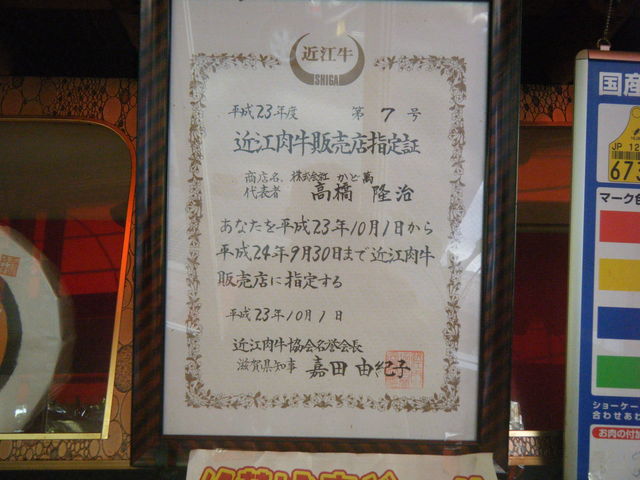 近江牛
SHIGA
平成23年度 第7号
近江肉牛販売店指定証
商店名 株式会社 かど萬
代表者 高橋 隆治
あなたを平成23年10月1日から
平成24年9月30日まで近江肉牛
販売店に指定する
平成23年10月1日
近江肉牛協会名誉会長
滋賀県知事 嘉田 由紀子
国産
JP 12
673
マーク色
ショーケー
合わせあわ
お肉の付加